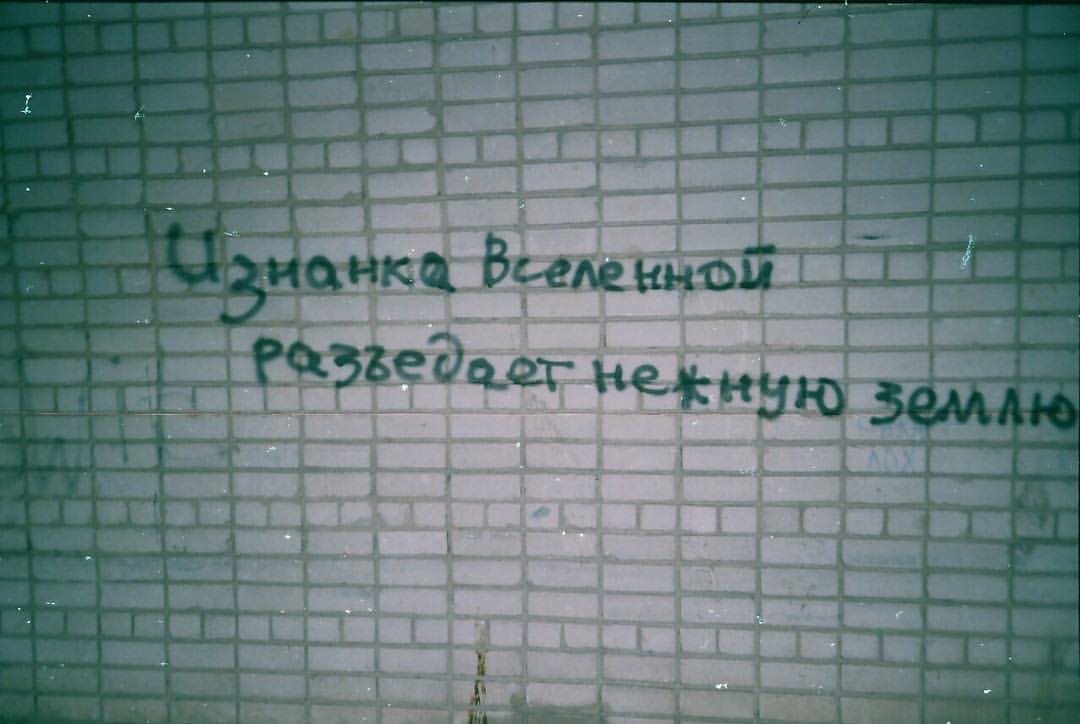 Изнанка Вселенной
разъедает нежную землю